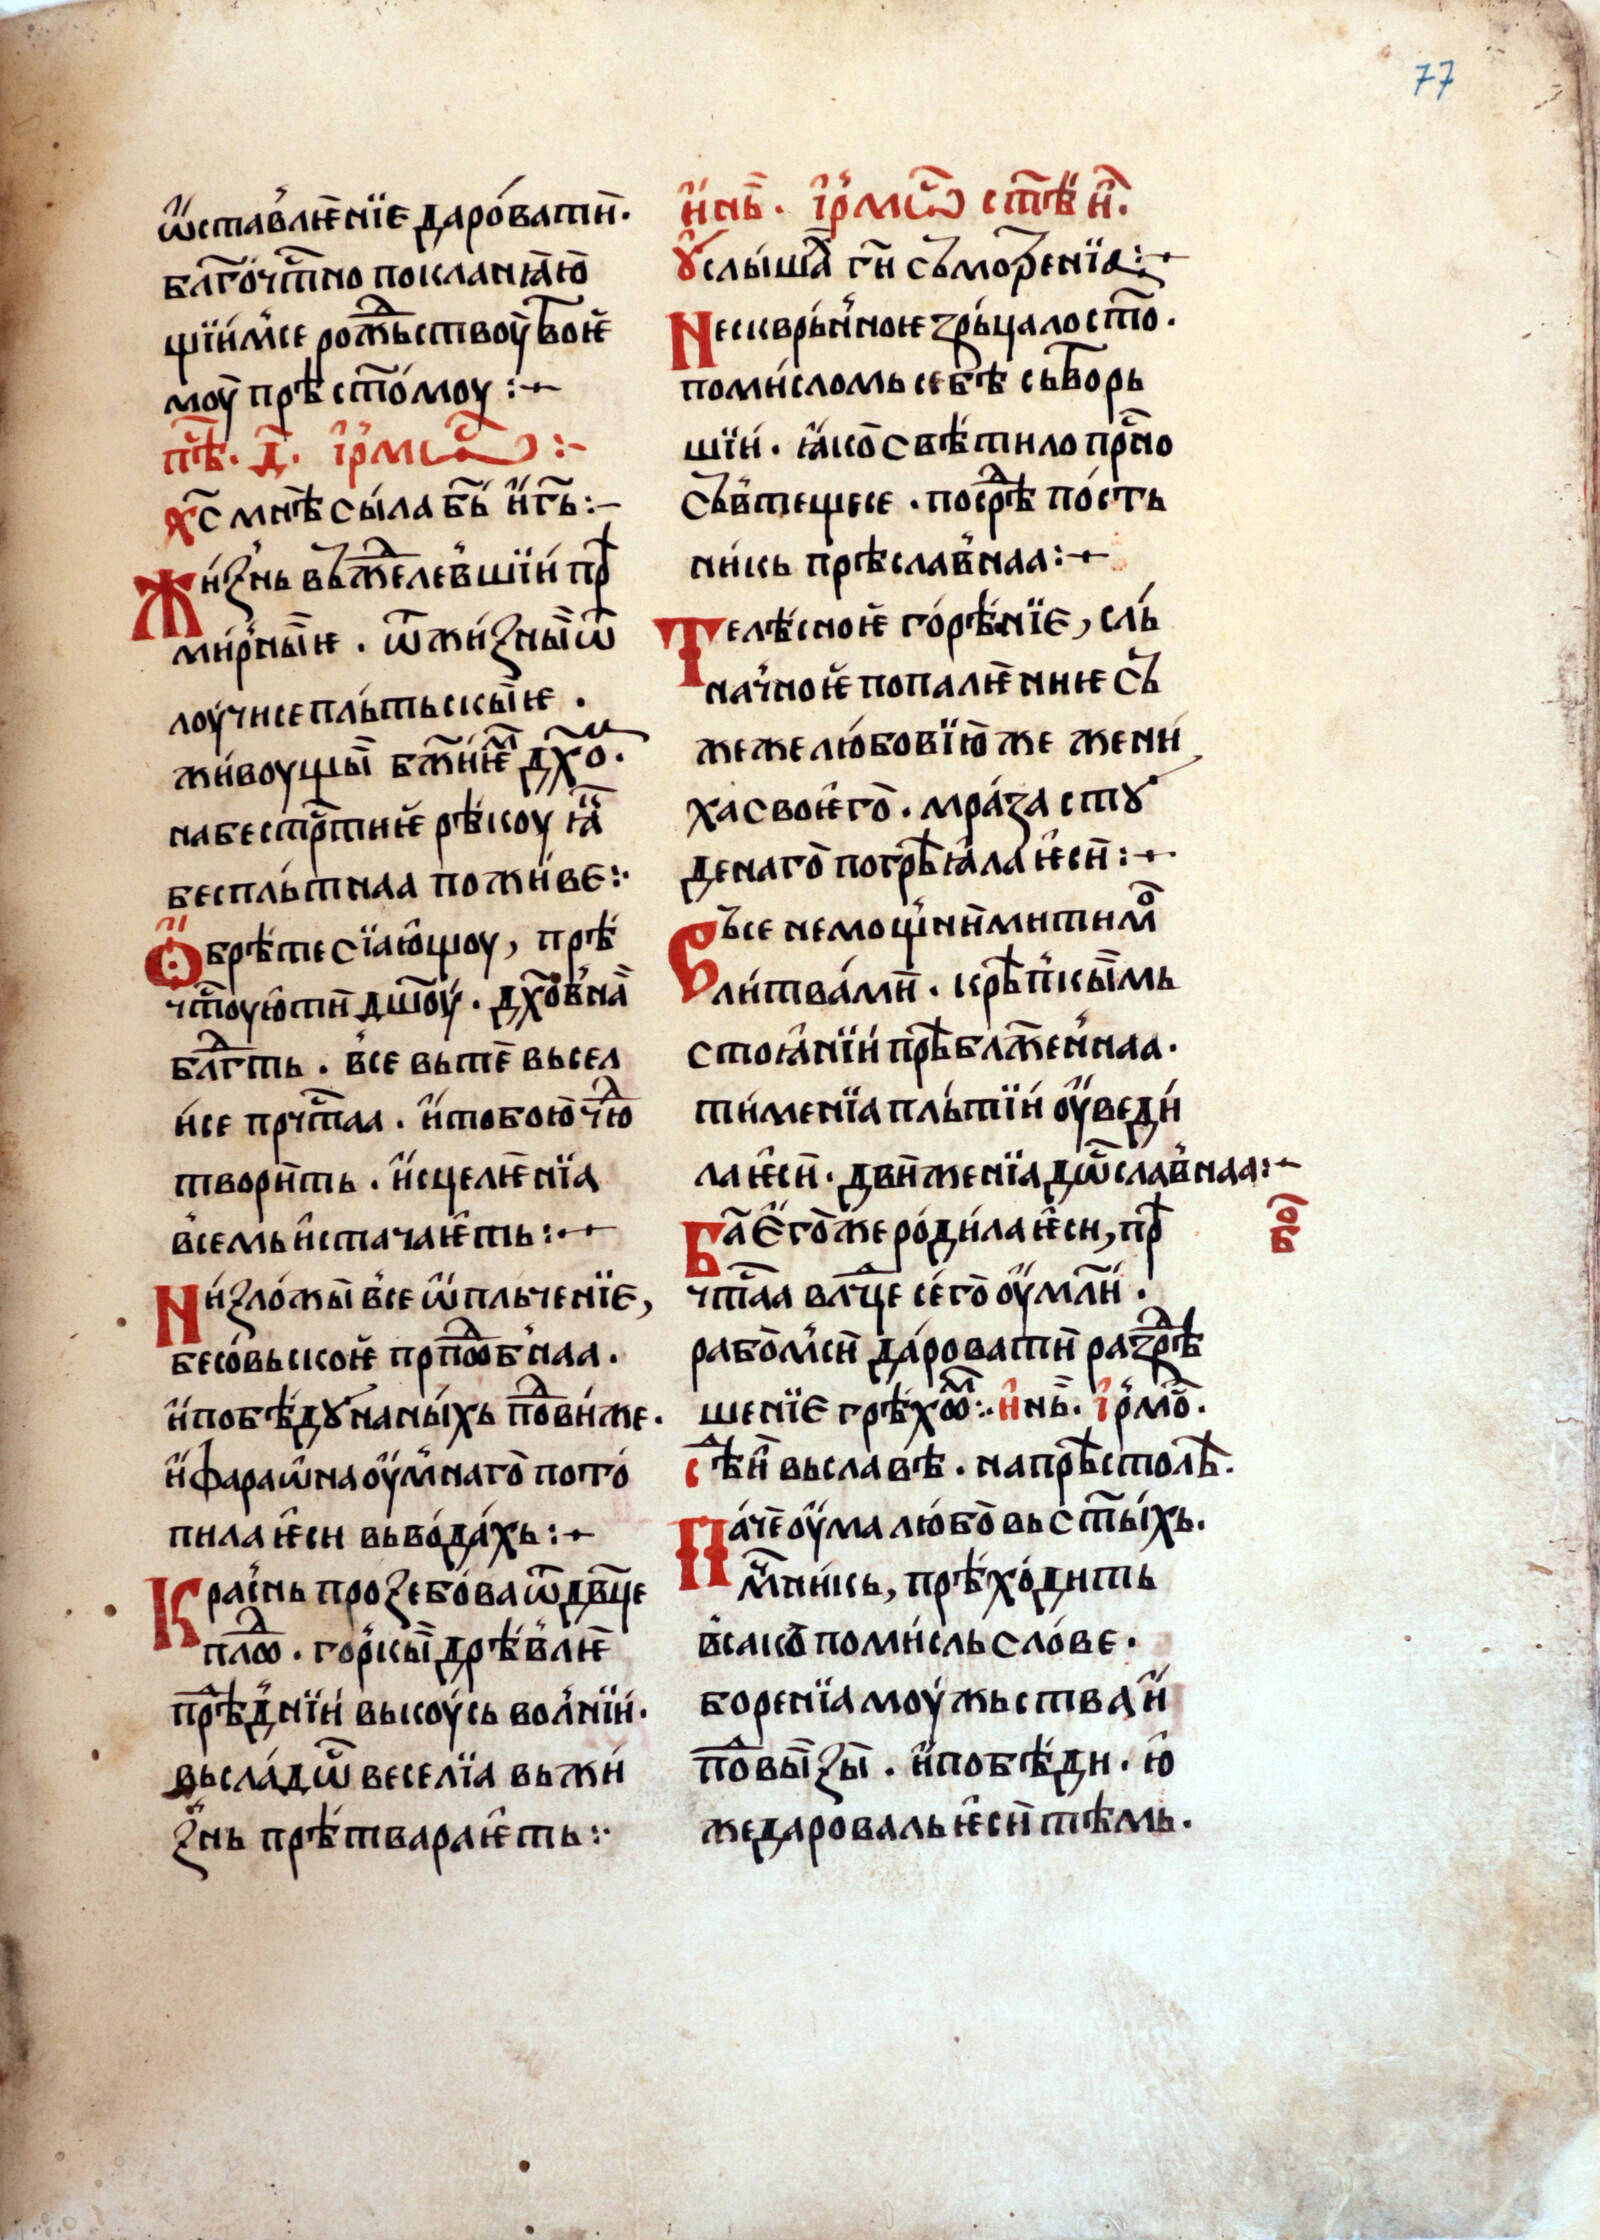 77
ѡ҆ставлꙗ҆нїе дарова́тѝ·
бл҃го҆чⷭ҇тно покланꙗ҆ю҆
щїи́мсе рожⷣьствоу҆ твоѥ
моу҆ прѣстⷪ҇моу :~
пⷭ҇ѣ· д҃· і҆рмⷭ҇ѡ :~
х҃с мнѣ сы́ла б҃ь и҆ г҃ь :~
Жи́ꙁнь въжⷣелевшїи прⷣ
ми́рныѥ · ѿ жи́ꙁны ѿ
лоу́чисе пль́тьскыѥ ·
жи́воущы бж҃иѥⷨ дх҃ѡⷨ·
на бестрⷭ҇тниѥ рѣ́коу ꙗ҆ⷦ
беспль́тнаа пожи́ве :·
Ѡ҆брѣ́те сїа҆ю҆щоу, прѣ́
чⷭ҇тоую҆ ти дш҃оу́ · дх҃о́внаⷭ҇
блгⷣть · все въ те̏ въсел
и́се прчⷭ҇таа · и҆ тобою чюⷣ
твори́ть · и҆сцелѥ҆нїа
всемь и҆стачаѥ҆ть :~
Ни́ꙁложы все ѡ҆пль́ченїе,
бесо́вьскоѥ прпⷣѡбнаа ·
и҆ побѣ́дꙋ на ны́хь пⷣови́же ·
и҆ фараѡ҆на оу҆мнаго̏ пото́
пила ѥ҆си въ во́да́хь :~
Краи́нь проꙁебо́ва ѿ дв҃це
плѡⷣ · го́рскы дрѣ́влѥ
прⷣѣднїи въкоу́сь во҆лнїи ·
въ сла́дѡⷭ҇ веселїа въ жи́
ꙁнь прѣ́твараѥ҆ть :·
и҆нь· і҆рмⷭ҇ѡ стⷭ҇ѣ и҆·
Ꙋ҆слы́шаⷯ г҃и съмоⷮренїа :~
Нескврь́нноѥ ꙁрь́цало стⷪ҇·
поми́сломь себѣ сьⷮворь
шїи · ꙗ҆ко̏ свѣ́тило прⷭ҇но
съвте́щесе · посрⷣѣ по́сть
ни́кь прѣславнаа :~
Телѣ́сноѥ го́рѣ́нїе, слъ́
начноѥ попалѥ҆ниѥ съ
жеже любовїю҆ же жени́
ха своѥ҆го̏ · мра́ꙁа стꙋ
денаго̏ погрⷣѣꙗ҆ла ѥ҆си :~
Въ се немощни́ми ти моⷧ
ли́тва́ми · крⷣѣпкы́мь
стоꙗ҆нїи прѣблаж҃еннаа ·
ти́менїа пль́тїи оу҆веди́
ла ѥ҆си · движенїа дѡⷭ҇славнаа :~
Б҃а є҆го̏же роди́ла ѥ҆си, прⷣ
чⷭ҇таа влⷣце се́го̏ оу҆мл҃и́ ·
рабо̏мси дарова́тѝ раꙁрⷣѣ
шенїе грѣхѡⷨ :· и҆нь· і҆рмⷭ҇ѡ·
сⷣѣи въ славѣ · на прѣстолѣ·
Па́че оу҆ма любо̏вь стⷭ҇ы́хь·
мⷱ҇ни́кь, прѣхо́дить
всако̏ поми́сль сло́ве ·
боренїа моу́жьства и҆
пⷣовы́ꙁы · и҆ побѣ́ди · ю҆
же дароваль ѥ҆си тѣмь·